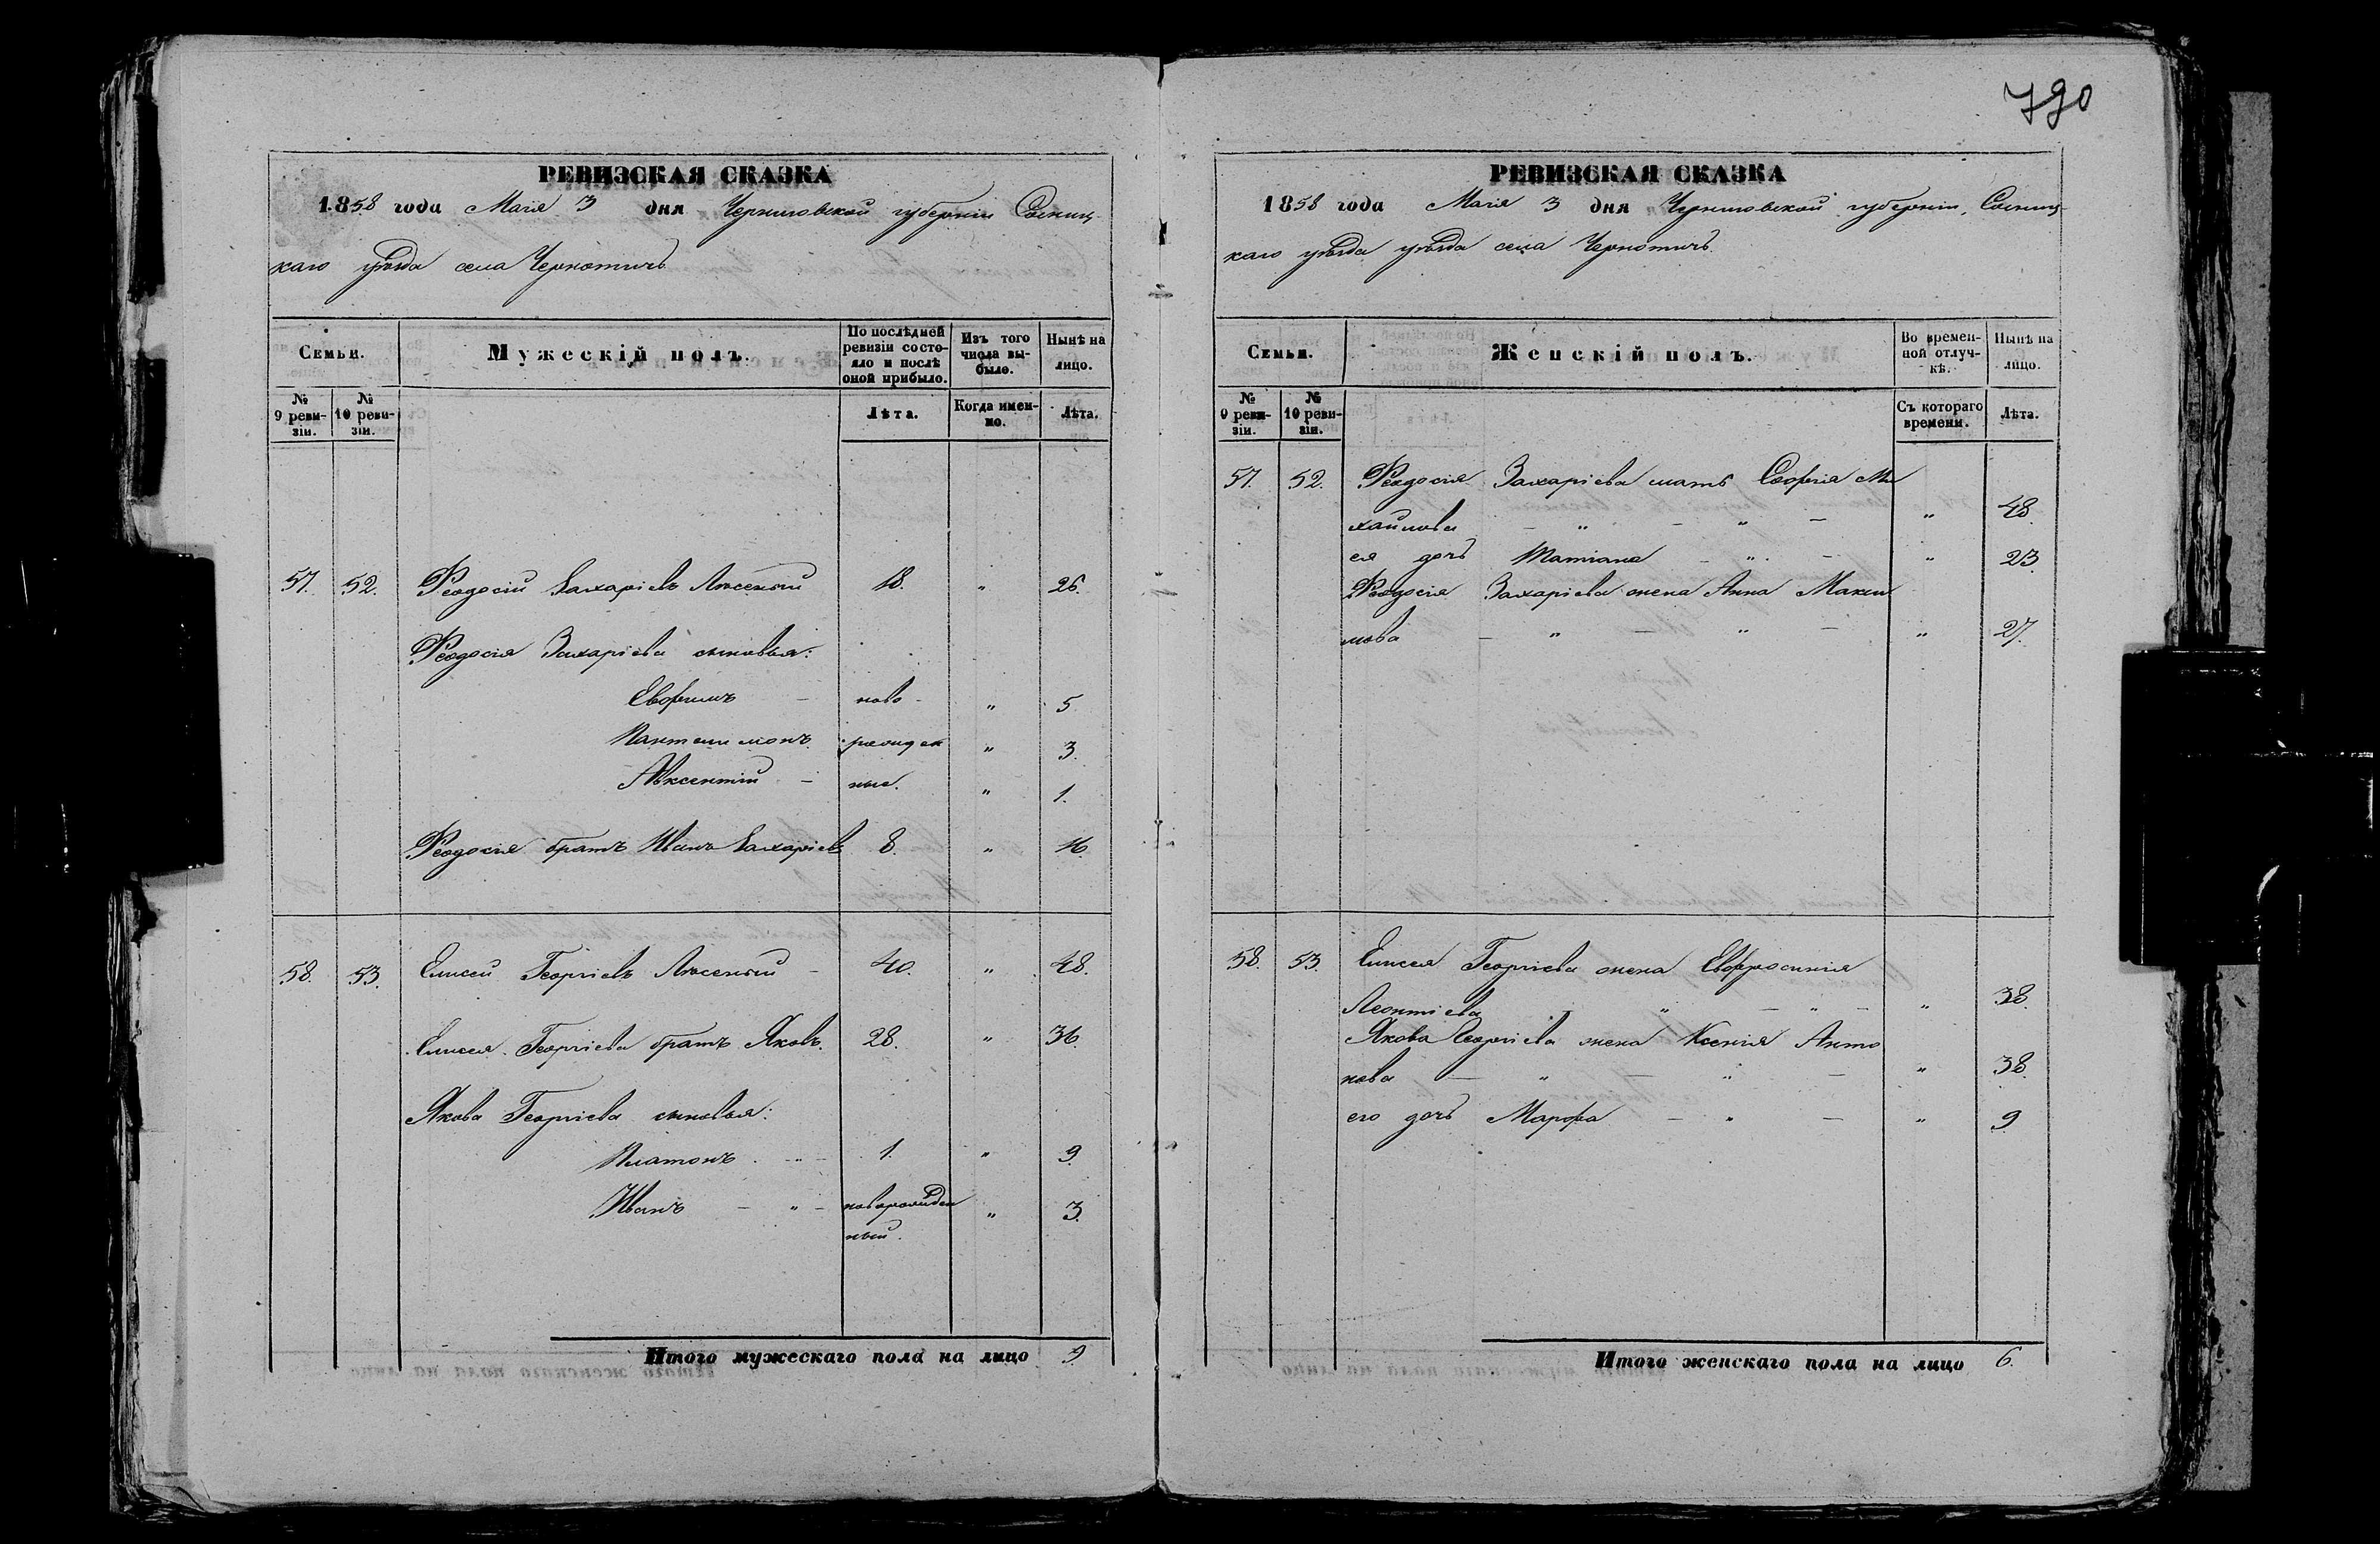 790
РЕВИЗСКАЯ СКАЗКА
1858 года Маія 3 дня Черниговской губерніи Сосниц-
каго уѣзда села Чернотичъ
Семьи.
Мужескій полъ.
По послѣдней ревизіи состояло и послѣ оной прибыло.
Изъ того числа выбыло.
Нынѣ на лицо.
№ 9 ревизіи.
№ 10 ревизіи.
Лѣта.
Когда именно.
Лѣта.
57. 52. Феодосій Захаріевъ Лясскій 18. " 26.
Феодосія Захаріева сыновья:
Евфимъ - ново- " 5
Пантелимонъ рожден " 3.
Авксентій - ные. " 1.
Феодосія братъ Иванъ Захаріевъ 8. " 16.
58. 53. Елисей Георгіевъ - 40. " 48.
Елисея Георгіева братъ Яковъ. 28. " 36.
Якова Георгіева сыновья:
Платонъ - " - 1. " 9.
Иванъ - " - новорожден " 3.
ный.
Итого мужескаго пола на лицо 9.
РЕВИЗСКАЯ СКАЗКА
1858 года Маія 3 дня Черниговской губерніи, Сосниц-
каго уѣзда уѣзда села Чернотичъ
Семьи.
Женскій полъ.
Во временной отлучкѣ.
Нынѣ на лицо.
№ 9 ревизіи.
№ 10 ревизіи.
Съ котораго времени.
Лѣта.
57. 52. Феодосія Захаріева мать Софія Ми
хайлова - " - " - " 48.
ея дочь Татіана - " - " 23.
Феодосія Захаріева жена Анна Макси
мова - " - " - " 27.
58. 53. Елисея Георгіева жена Евфросинія
Леонтіева - " - " - " 38.
Якова Георгіева жена Ксенія Анто
нова - " - " - " 38.
его дочь Марфа - " - " 9
Итого женскаго пола на лицо 6.